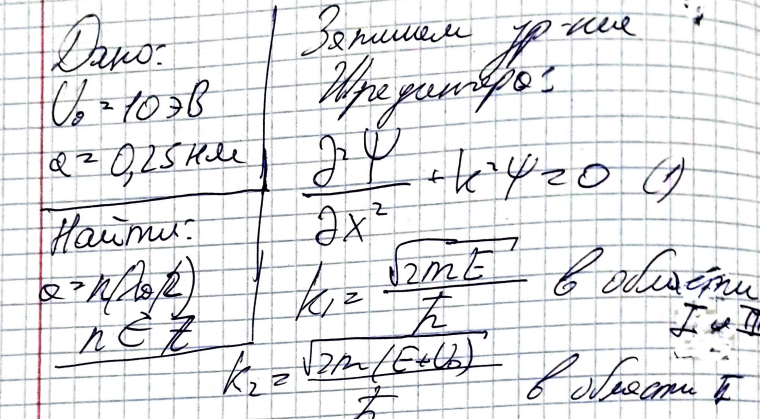 Дано:
U₀ = 10 эВ
a = 0,25 нм
Найти:
a = n(λ₀/2)
n ∈ Z
Запишем ур-ние
Шредингера:
∂²Ψ/∂x² + k²Ψ = 0 (1)
k₁ = √(2mE)/ħ в области
I и III
k₂ = √(2m(E+U₀))/ħ в области II